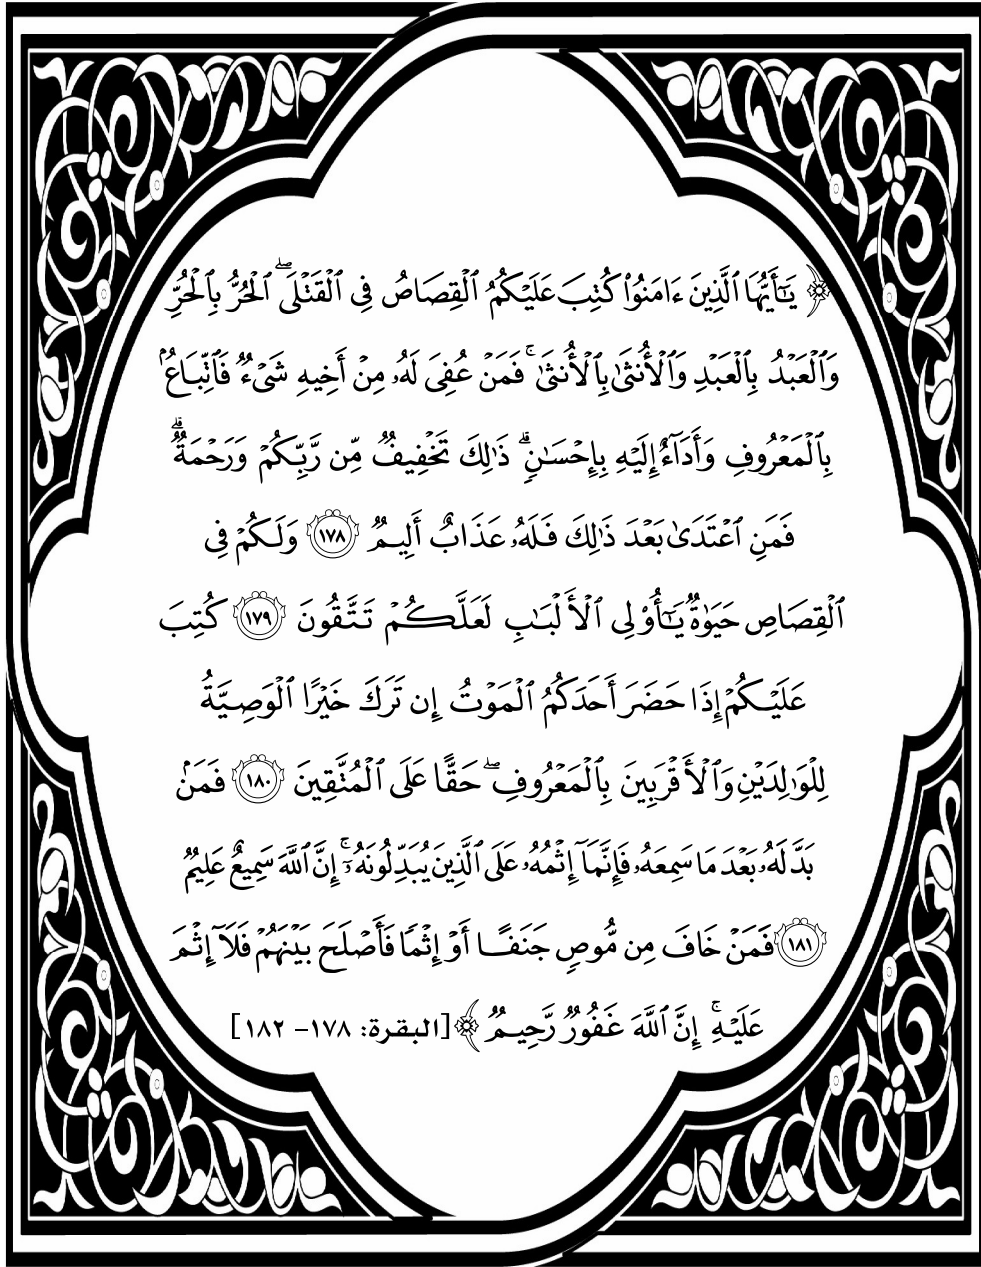 ﴿ يَٰٓأَيُّهَا ٱلَّذِينَ ءَامَنُواْ كُتِبَ عَلَيۡكُمُ ٱلۡقِصَاصُ فِي ٱلۡقَتۡلَىۖ ٱلۡحُرُّ بِٱلۡحُرِّ
وَٱلۡعَبۡدُ بِٱلۡعَبۡدِ وَٱلۡأُنثَىٰ بِٱلۡأُنثَىٰۚ فَمَنۡ عُفِيَ لَهُۥ مِنۡ أَخِيهِ شَيۡءٞ فَٱتِّبَاعُۢ
بِٱلۡمَعۡرُوفِ وَأَدَآءٌ إِلَيۡهِ بِإِحۡسَٰنٖۗ ذَٰلِكَ تَخۡفِيفٞ مِّن رَّبِّكُمۡ وَرَحۡمَةٞۗ
فَمَنِ ٱعۡتَدَىٰ بَعۡدَ ذَٰلِكَ فَلَهُۥ عَذَابٌ أَلِيمٞ ١٧٨ وَلَكُمۡ فِي
ٱلۡقِصَاصِ حَيَوٰةٞ يَٰٓأُوْلِي ٱلۡأَلۡبَٰبِ لَعَلَّكُمۡ تَتَّقُونَ ١٧٩ كُتِبَ
عَلَيۡكُمۡ إِذَا حَضَرَ أَحَدَكُمُ ٱلۡمَوۡتُ إِن تَرَكَ خَيۡرًا ٱلۡوَصِيَّةُ
لِلۡوَٰلِدَيۡنِ وَٱلۡأَقۡرَبِينَ بِٱلۡمَعۡرُوفِۖ حَقًّا عَلَى ٱلۡمُتَّقِينَ ١٨٠ فَمَنۢ
بَدَّلَهُۥ بَعۡدَ مَا سَمِعَهُۥ فَإِنَّمَآ إِثۡمُهُۥ عَلَى ٱلَّذِينَ يُبَدِّلُونَهُۥٓۚ إِنَّ ٱللَّهَ سَمِيعٌ عَلِيمٞ
١٨١ فَمَنۡ خَافَ مِن مُّوصٖ جَنَفًا أَوۡ إِثۡمٗا فَأَصۡلَحَ بَيۡنَهُمۡ فَلَآ إِثۡمَ
عَلَيۡهِۚ إِنَّ ٱللَّهَ غَفُورٞ رَّحِيمٞ ﴾ [البقرة: ١٧٨- ١٨٢]